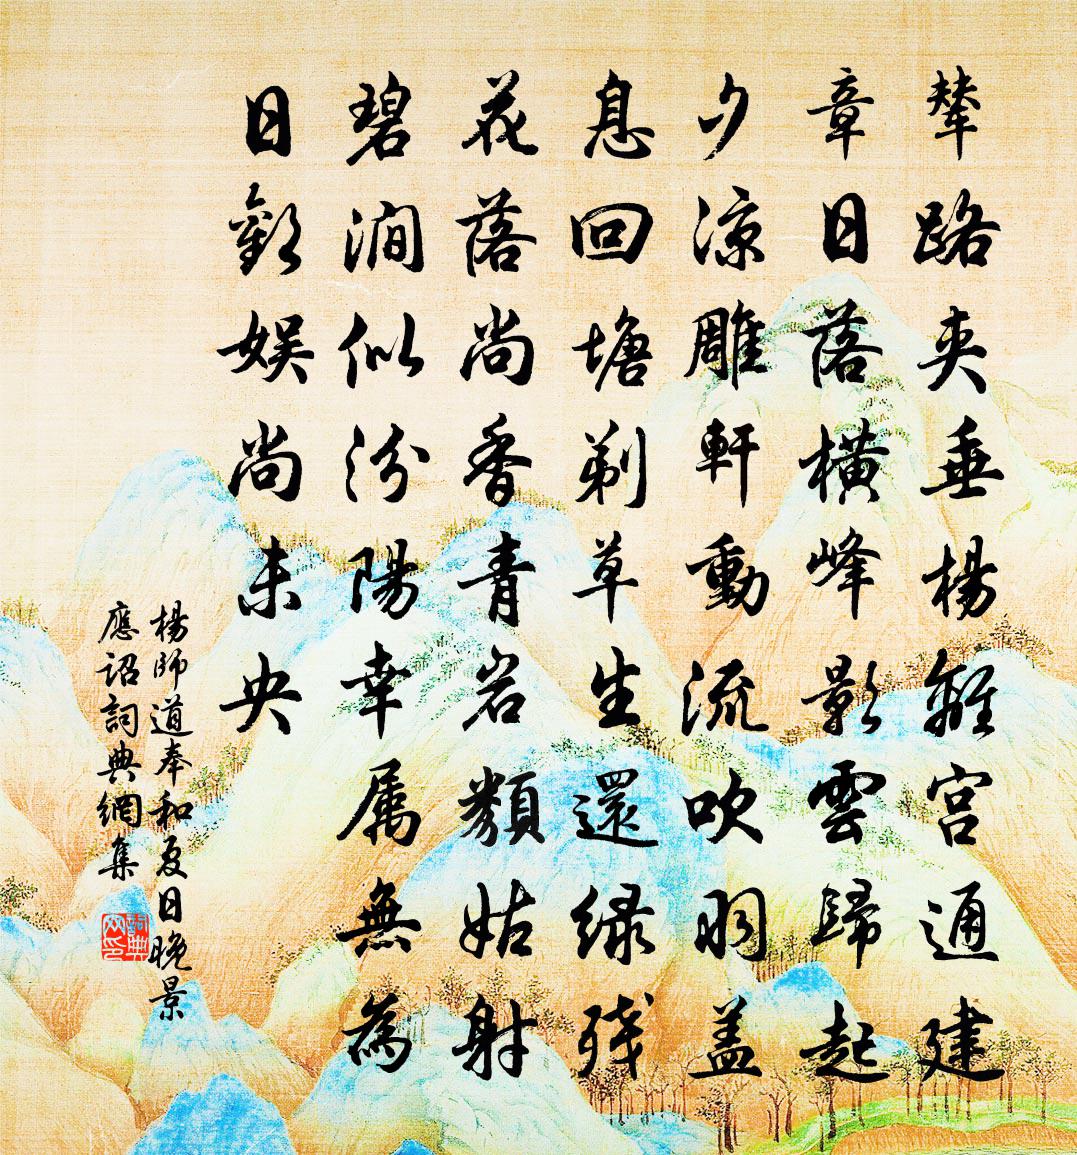 輦路夾垂楊離宮通建
章日落橫峰影雲歸起
夕涼雕軒動流吹羽蓋
息回塘剃草生還绿残
花落尚香青岩類姑射
碧澗似汾陽幸属無為
日歡娱尚未央
楊師道奉和夏日晚景
應詔詞典網集